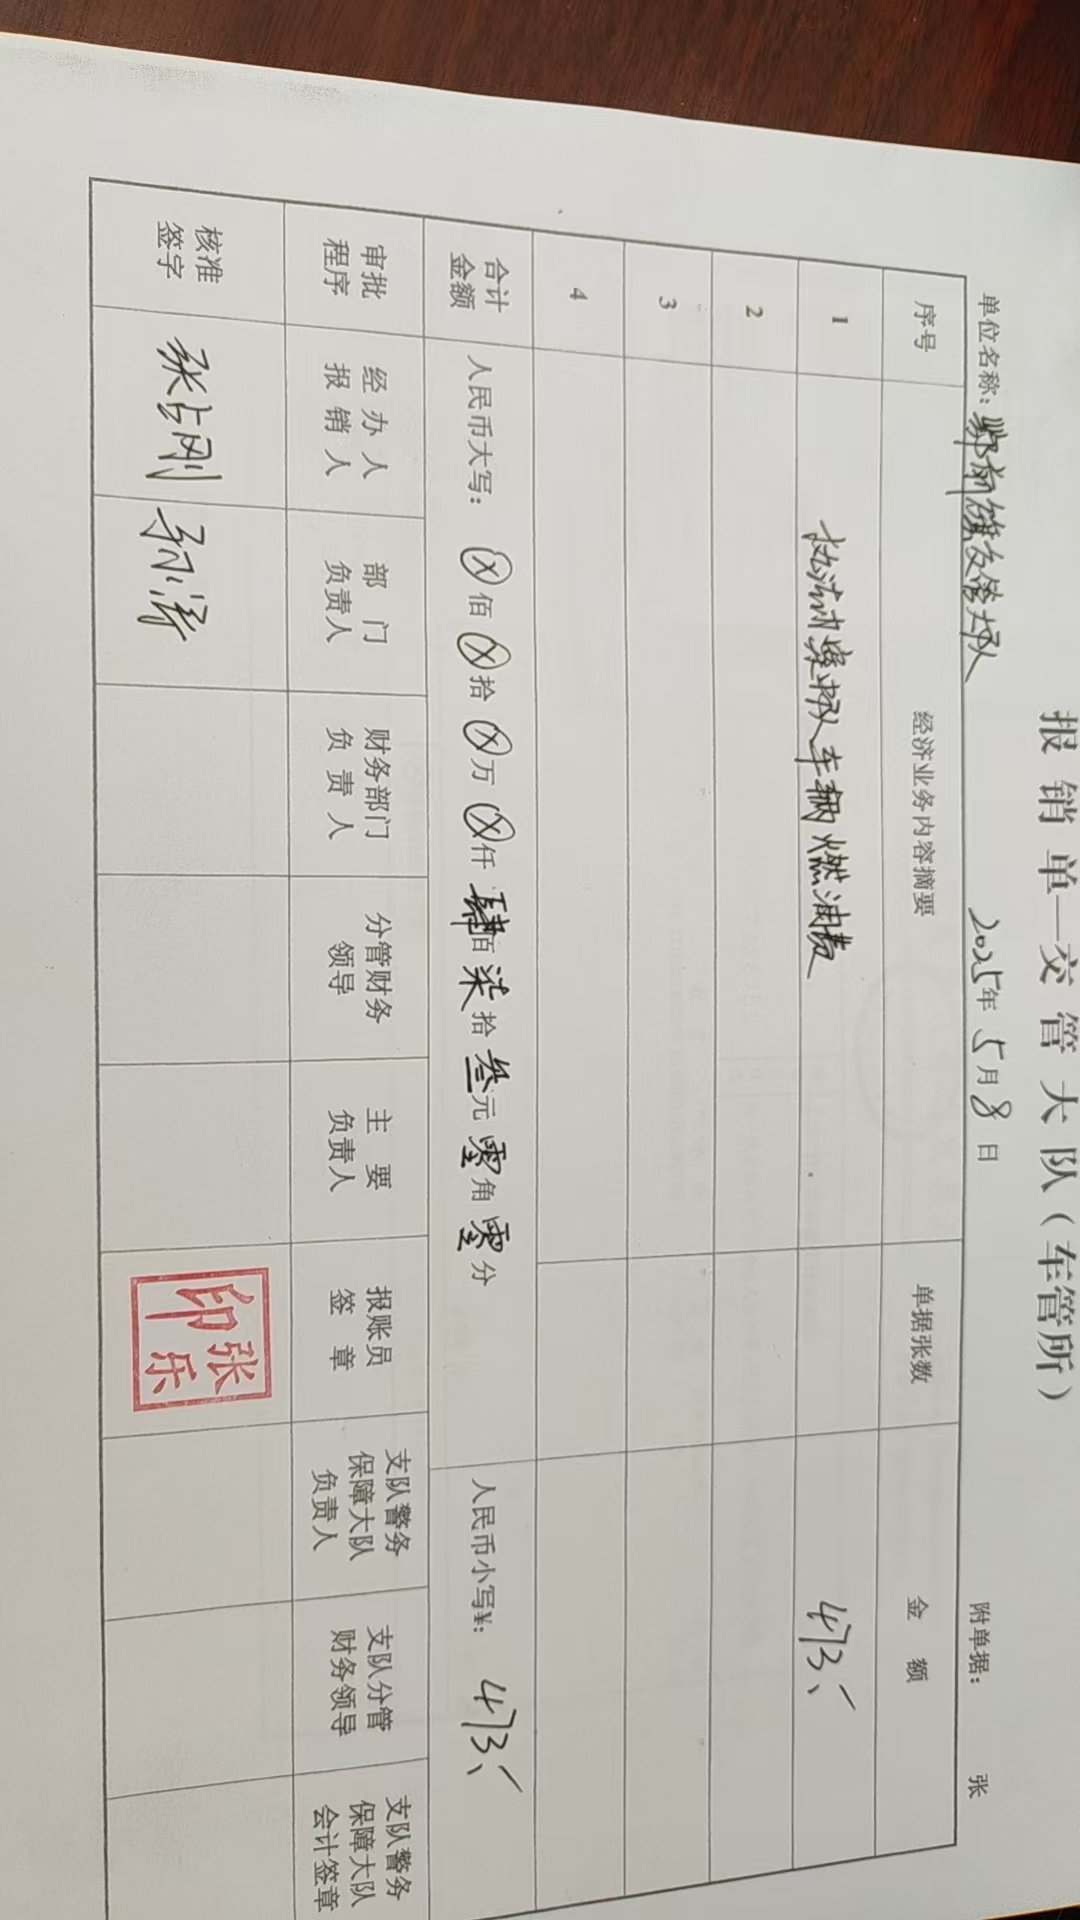 报销单—交管大队（车管所）
单位名称：鄂前旗交管大队 2025年5月8日 附单据： 张
序号 经济业务内容摘要 单据张数 金额
1 执法办案中队车辆燃油费 473.-
2
3
4
合计金额 人民币大写：ⓧ佰ⓧ拾ⓧ万ⓧ仟肆佰柒拾叁元零角零分 人民币小写¥：473.-
审批程序 经办人报销人 部门负责人 财务部门负责人 分管财务领导 主要负责人 报账员签章 支队警务保障大队负责人 支队分管财务领导 支队警务保障大队会计签章
核准签字 张占刚 孙涛 张乐印